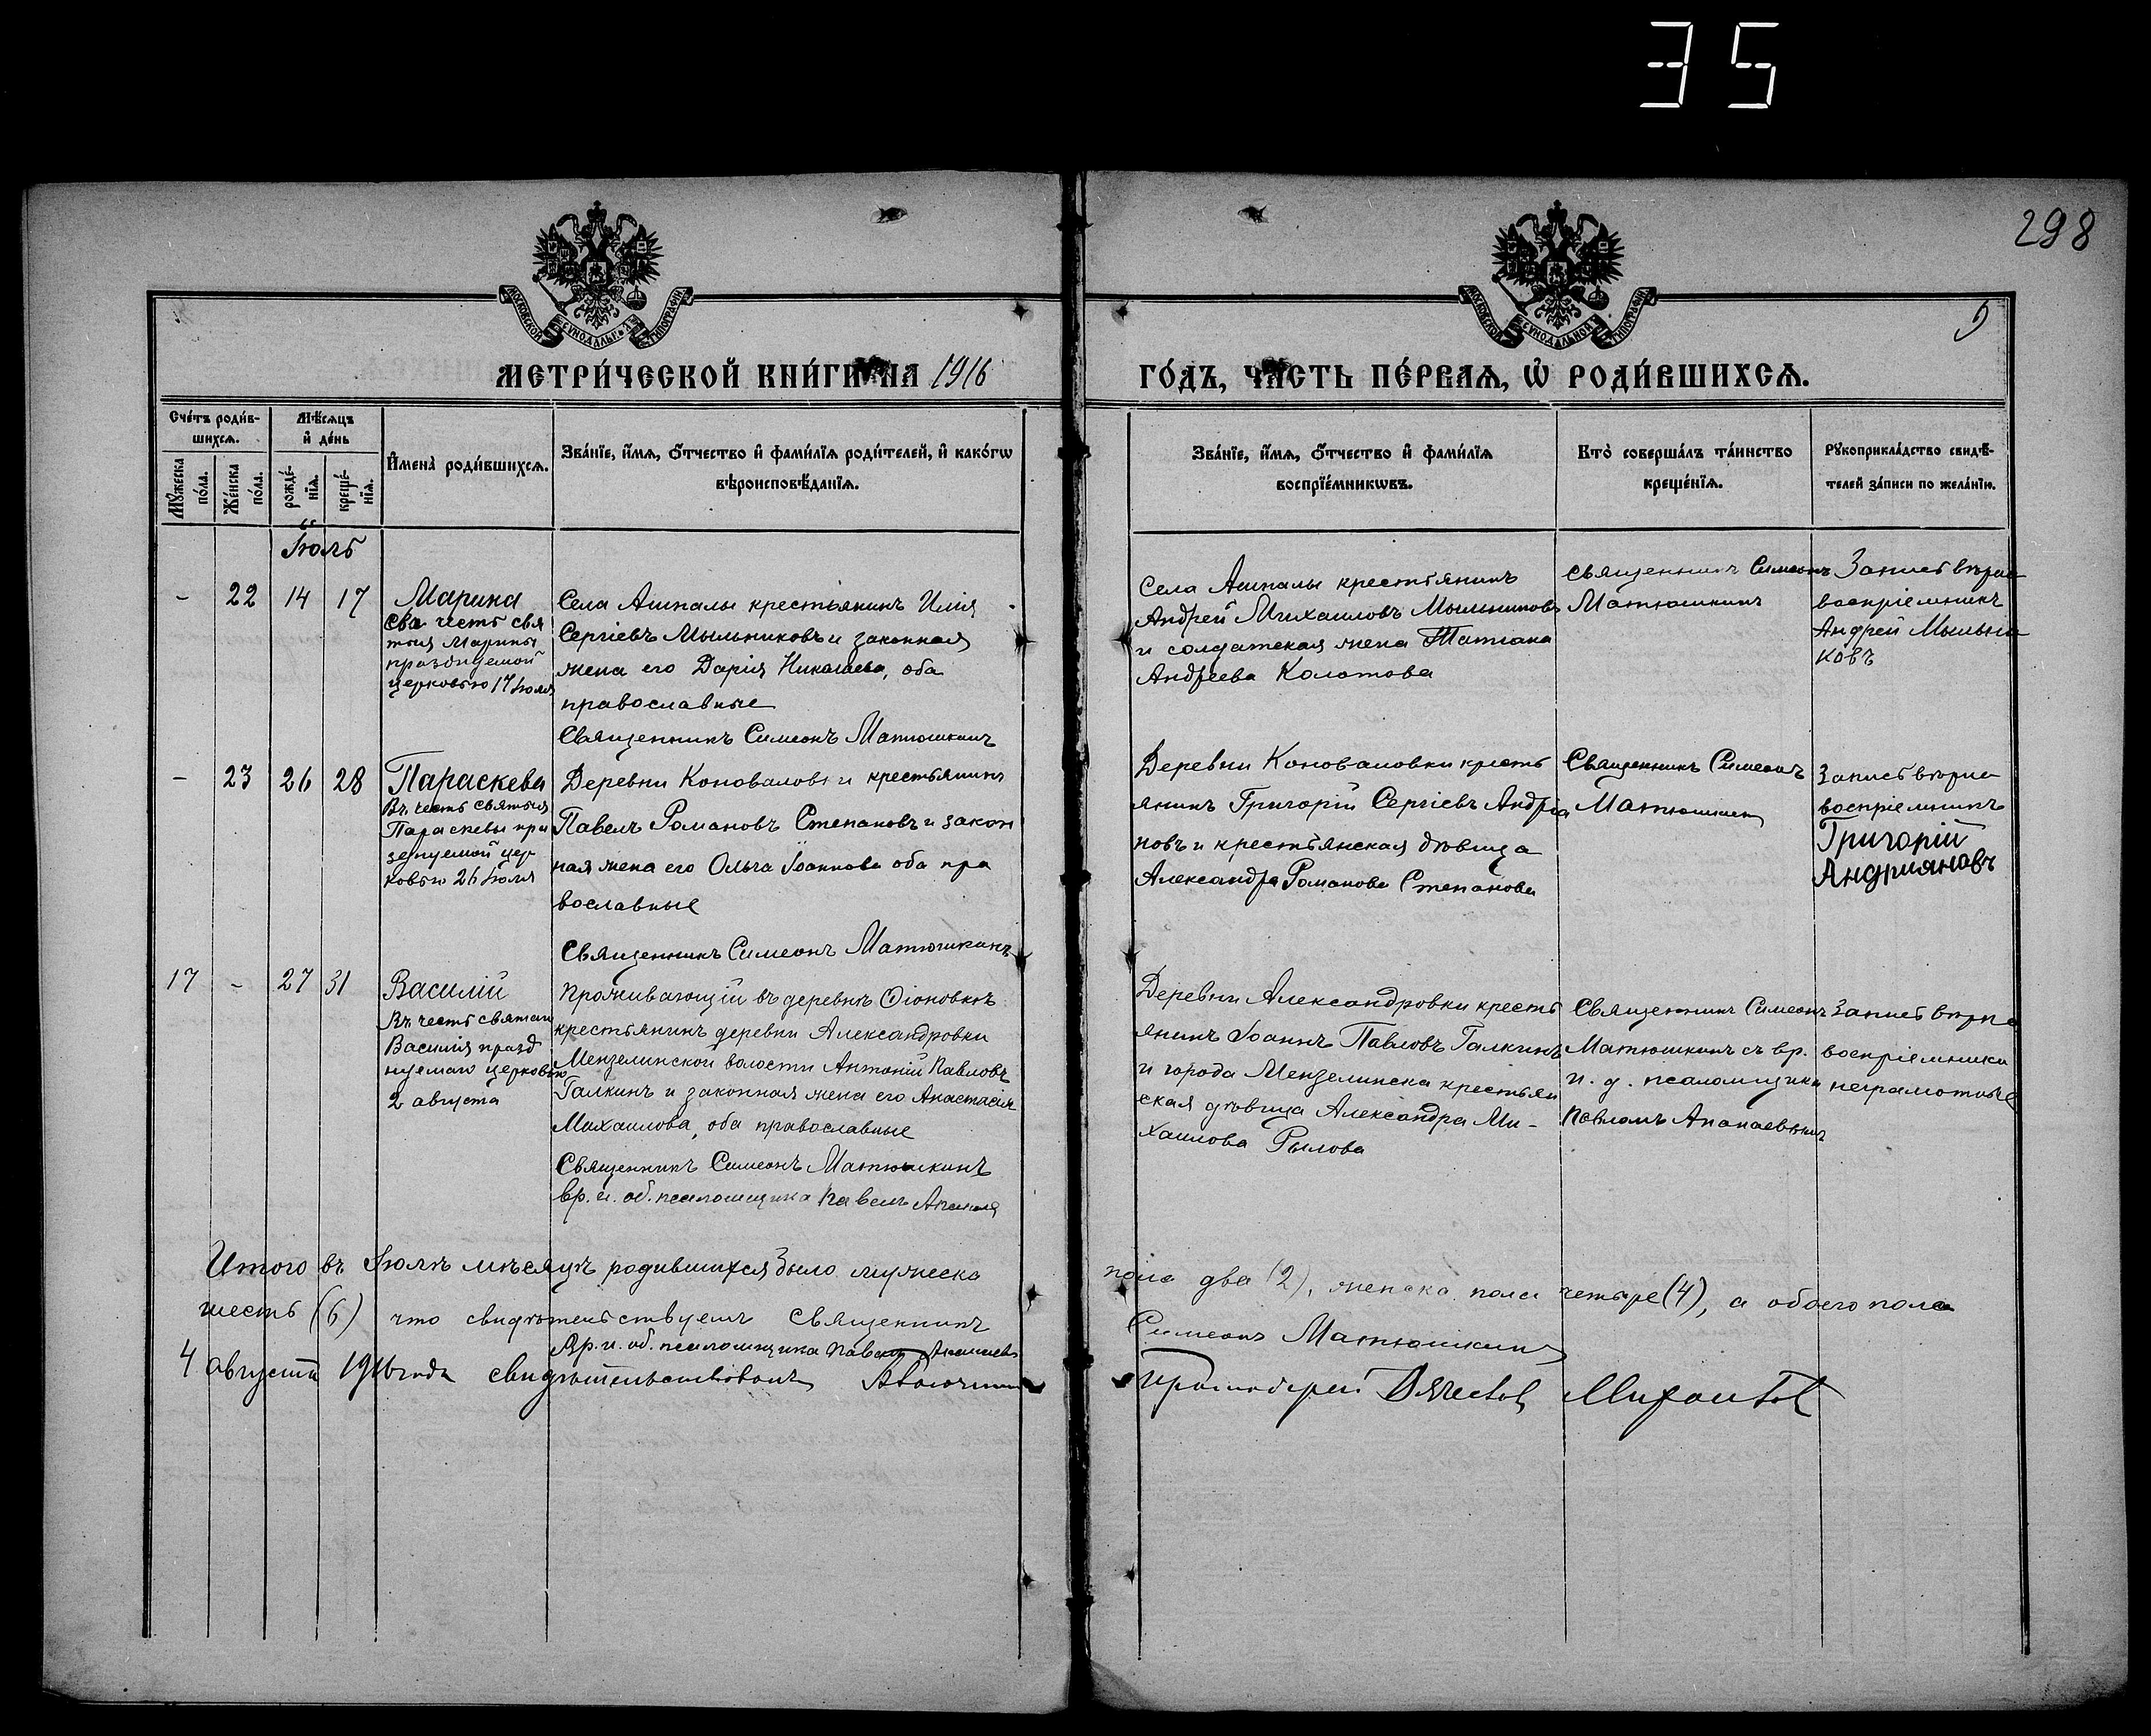 35
298
5
МОСКОВСКОЙ СѴНОДАЛЬНОЙ ТИПОГРАФІИ
МОСКОВСКОЙ СѴНОДАЛЬНОЙ ТИПОГРАФІИ
МЕТРИ́ЧЕСКОЙ КНИ́ГИ НА 1916
ГО́ДЪ, ЧА́СТЬ ПЕ́РВАѦ, Ѡ҆ РОДИ́ВШИХСѦ.
Сче́тъ роди́в-
шихсѧ.
Мꙋ́жеска
по́ла.
Же́нска
по́ла.
Мѣ́сѧцъ
и҆ де́нь
рожде́-
нїѧ.
креще́-
нїѧ.
И҆мена̀ роди́вшихсѧ.
Зва́нїе, и҆́мѧ, ѻ҆́тчество и҆ фами́лїѧ роди́телей, и҆ како́гѡ
вѣроисповѣ́данїѧ.
Зва́нїе, и҆́мѧ, ѻ҆́тчество и҆ фами́лїѧ
воспрїе́мникѡвъ.
Кто̀ соверша́лъ та́инство
креще́нїѧ.
Рꙋкоприкла́дство свидѣ́-
телей за́писи по жела́нїю.
Іюль
- 22 14 17
Марина
честь свя
тыя Марины
празднуемой
церковью 17 Іюля
Села Ашпалы крестьянинъ Илія
Сергіевъ Мыльниковъ и законная
жена его Дарія Николаева, оба
православные
Священникъ Симеонъ Матюшкинъ
Села Ашпалы крестьянинъ
Андрей Михаиловъ Мыльниковъ
и солдатская жена Татіана
Андреева Колотова
Священникъ Симеонъ
Матюшкинъ
Запись вѣрна
воспріемникъ
Андрей Мыльни
ковъ
- 23 26 28
Параскева
Въ честь святыя
Параскевы пра
зднуемой цер
ковью 26 Іюля
Деревни Коноваловки крестьянинъ
Павелъ Романовъ Степановъ и закон
ная жена его Ольга Іоаннова оба пра
вославные
Священникъ Симеонъ Матюшкинъ
Деревни Коноваловки кресть
янинъ Григорій Сергіевъ Андрія
новъ и крестьянская дѣвица
Александра Романова Степанова
Священникъ Симеонъ
Матюшкинъ
Запись вѣрна
воспріемникъ
Григорій
Андрияновъ
17 - 27 31
Василій
Въ честь святаго
Василія празд
нуемаго церковью
2 августа
Проживающій въ деревнѣ
крестьянинъ деревни Александровки
Мензелинской волости Антоній Павловъ
Галкинъ и законная жена его Анастасія
Михаилова, оба православные
Священникъ Симеонъ Матюшкинъ
вр. и. об. псаломщика Павелъ
Деревни Александровки кресть
янинъ Іоаннъ Павловъ Галкинъ
и города Мензелинска крестьян
ская дѣвица Александра Ми-
хаилова Рылова
Священникъ Симеонъ
Матюшкинъ съ вр.
и. д. псаломщика
Павломъ Апанаевымъ
Запись вѣрна
воспріемники
неграмотные
Итого въ Іюлѣ мѣсяцѣ родившихся было мужеска
пола два (2), женска пола четыре (4), а обоего пола
шесть (6) что свидѣтельствуемъ Священникъ
Симеонъ Матюшкинъ
вр. и. об. псаломщика Павелъ
4 августа 1916 года свидѣтельствовалъ Благочинный
Протоіерей